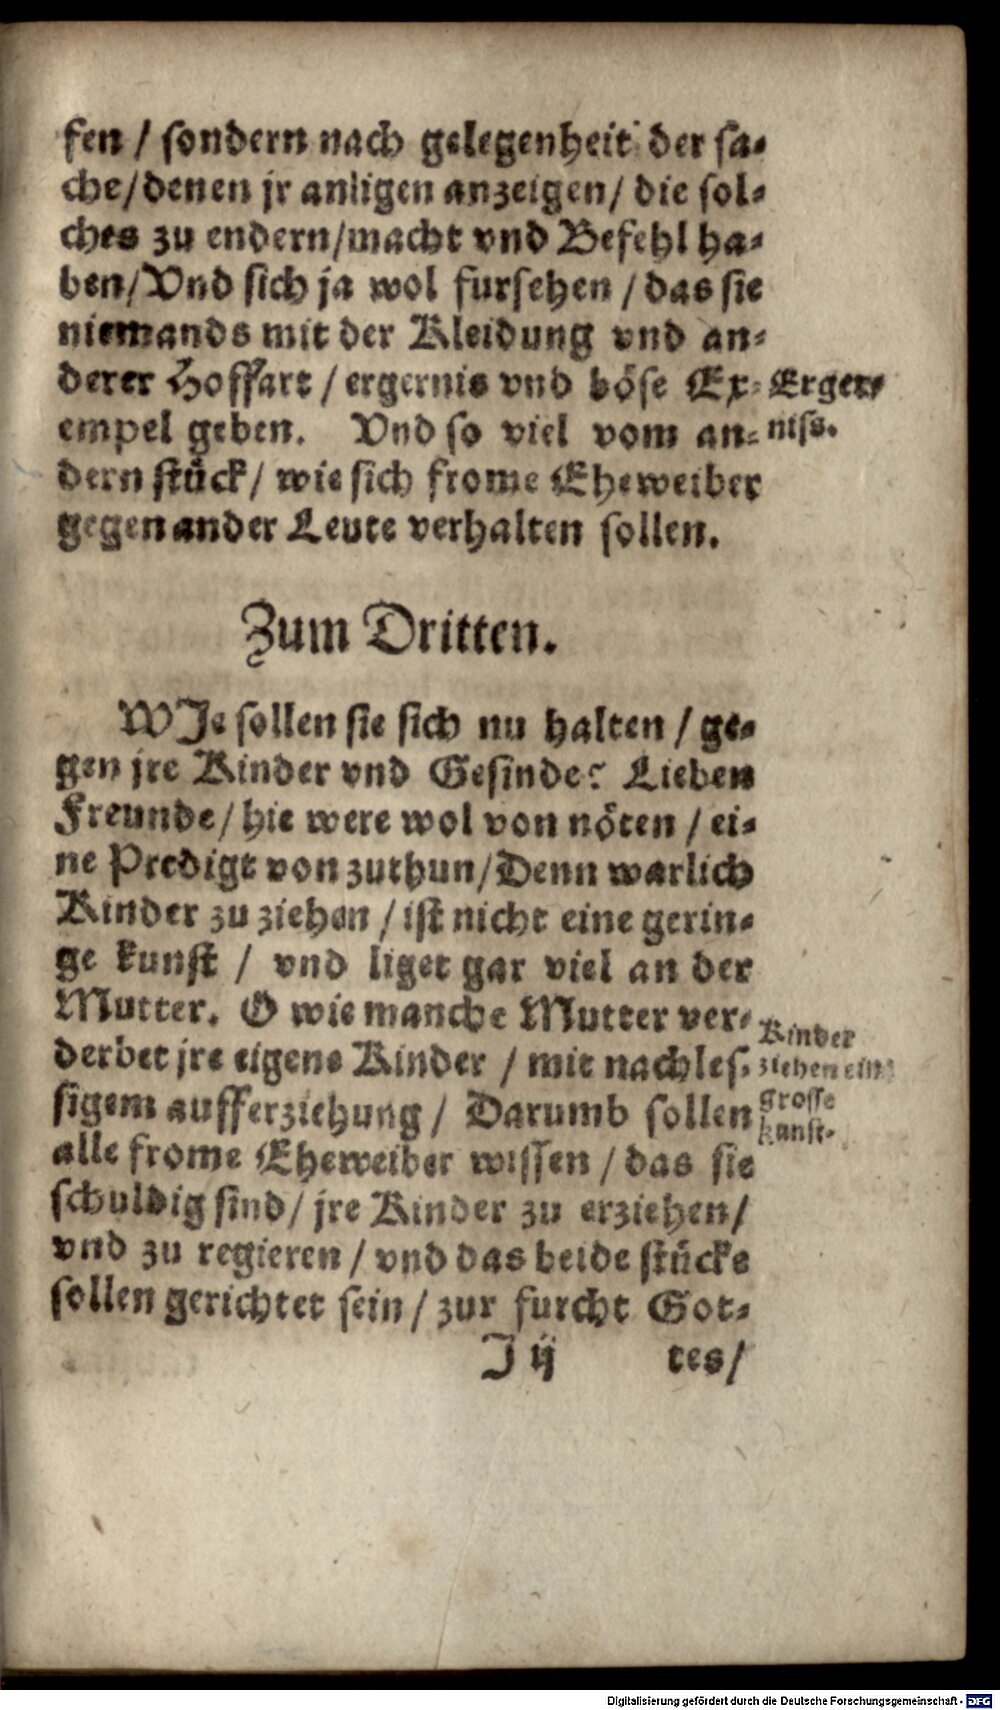 fen / sondern nach gelegenheit der sa-
che/denen jr anligen anzeigen/ die sol-
ches zu endern/macht vnd Befehl ha-
ben/Vnd sich ja wol fursehen / das sie
niemands mit der Kleidung vnd an-
derer Hoffart / ergernis vnd böse Ex-
empel geben. Vnd so viel vom an-
dern stück/ wie sich frome Eheweiber
gegen ander Leute verhalten sollen.
Erger-
niss.
Zum Dritten.
WJe sollen sie sich nu halten / ge-
gen jre Kinder vnd Gesinde? Lieben
Freunde/ hie were wol von nöten / ei-
ne Predigt von zuthun/Denn warlich
Kinder zu ziehen / ist nicht eine gerin-
ge kunst / vnd liget gar viel an der
Mutter. O wie manche Mutter ver-
derbet jre eigene Kinder / mit nachles-
sigem aufferziehung/ Darumb sollen
alle frome Eheweiber wissen / das sie
schuldig sind/ jre Kinder zu erziehen/
vnd zu regieren / vnd das beide stücke
sollen gerichtet sein / zur furcht Got-
Kinder
ziehen ein
grosse
kunst.
J ij tes/
Digitalisierung gefördert durch die Deutsche Forschungsgemeinschaft - DFG